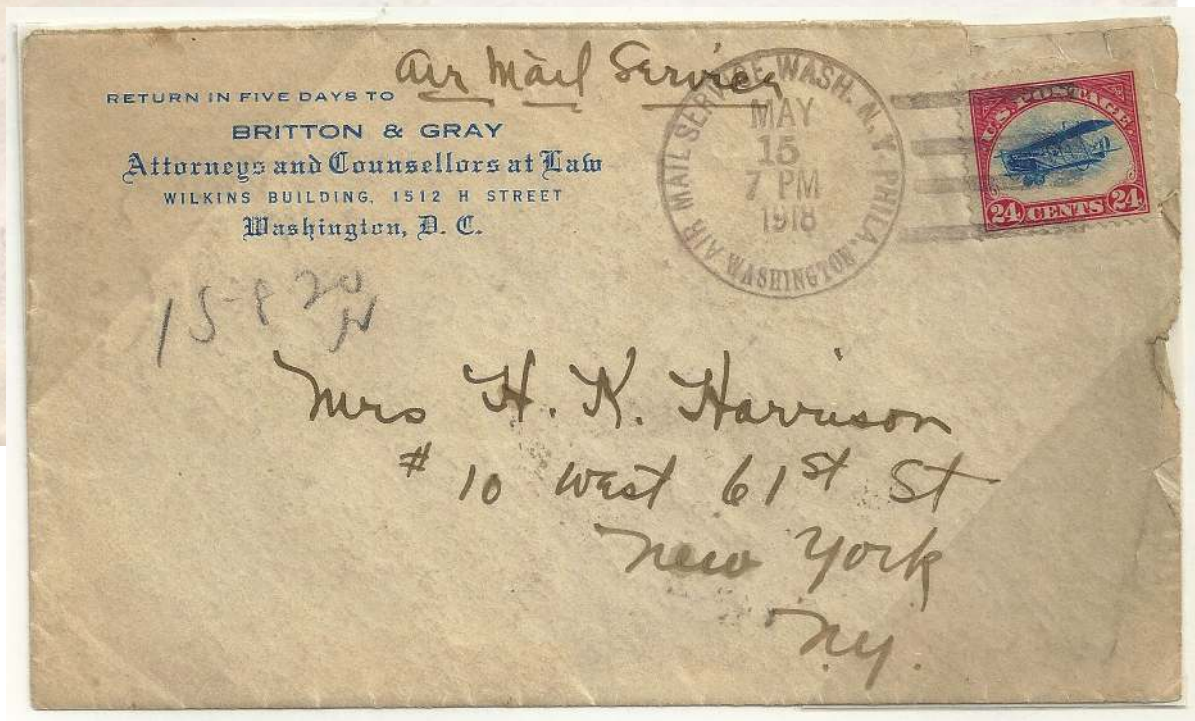 Air Mail Service
RETURN IN FIVE DAYS TO
BRITTON & GRAY
Attorneys and Counsellors at Law
WILKINS BUILDING, 1512 H STREET
Washington, D. C.
AIR MAIL SERVICE WASH. N.Y. PHILA.
MAY
15
7 PM
1918
WASHINGTON
U.S. POSTAGE
24 CENTS 24
Mrs H. K. Harrison
# 10 West 61st St
New York
N.Y.